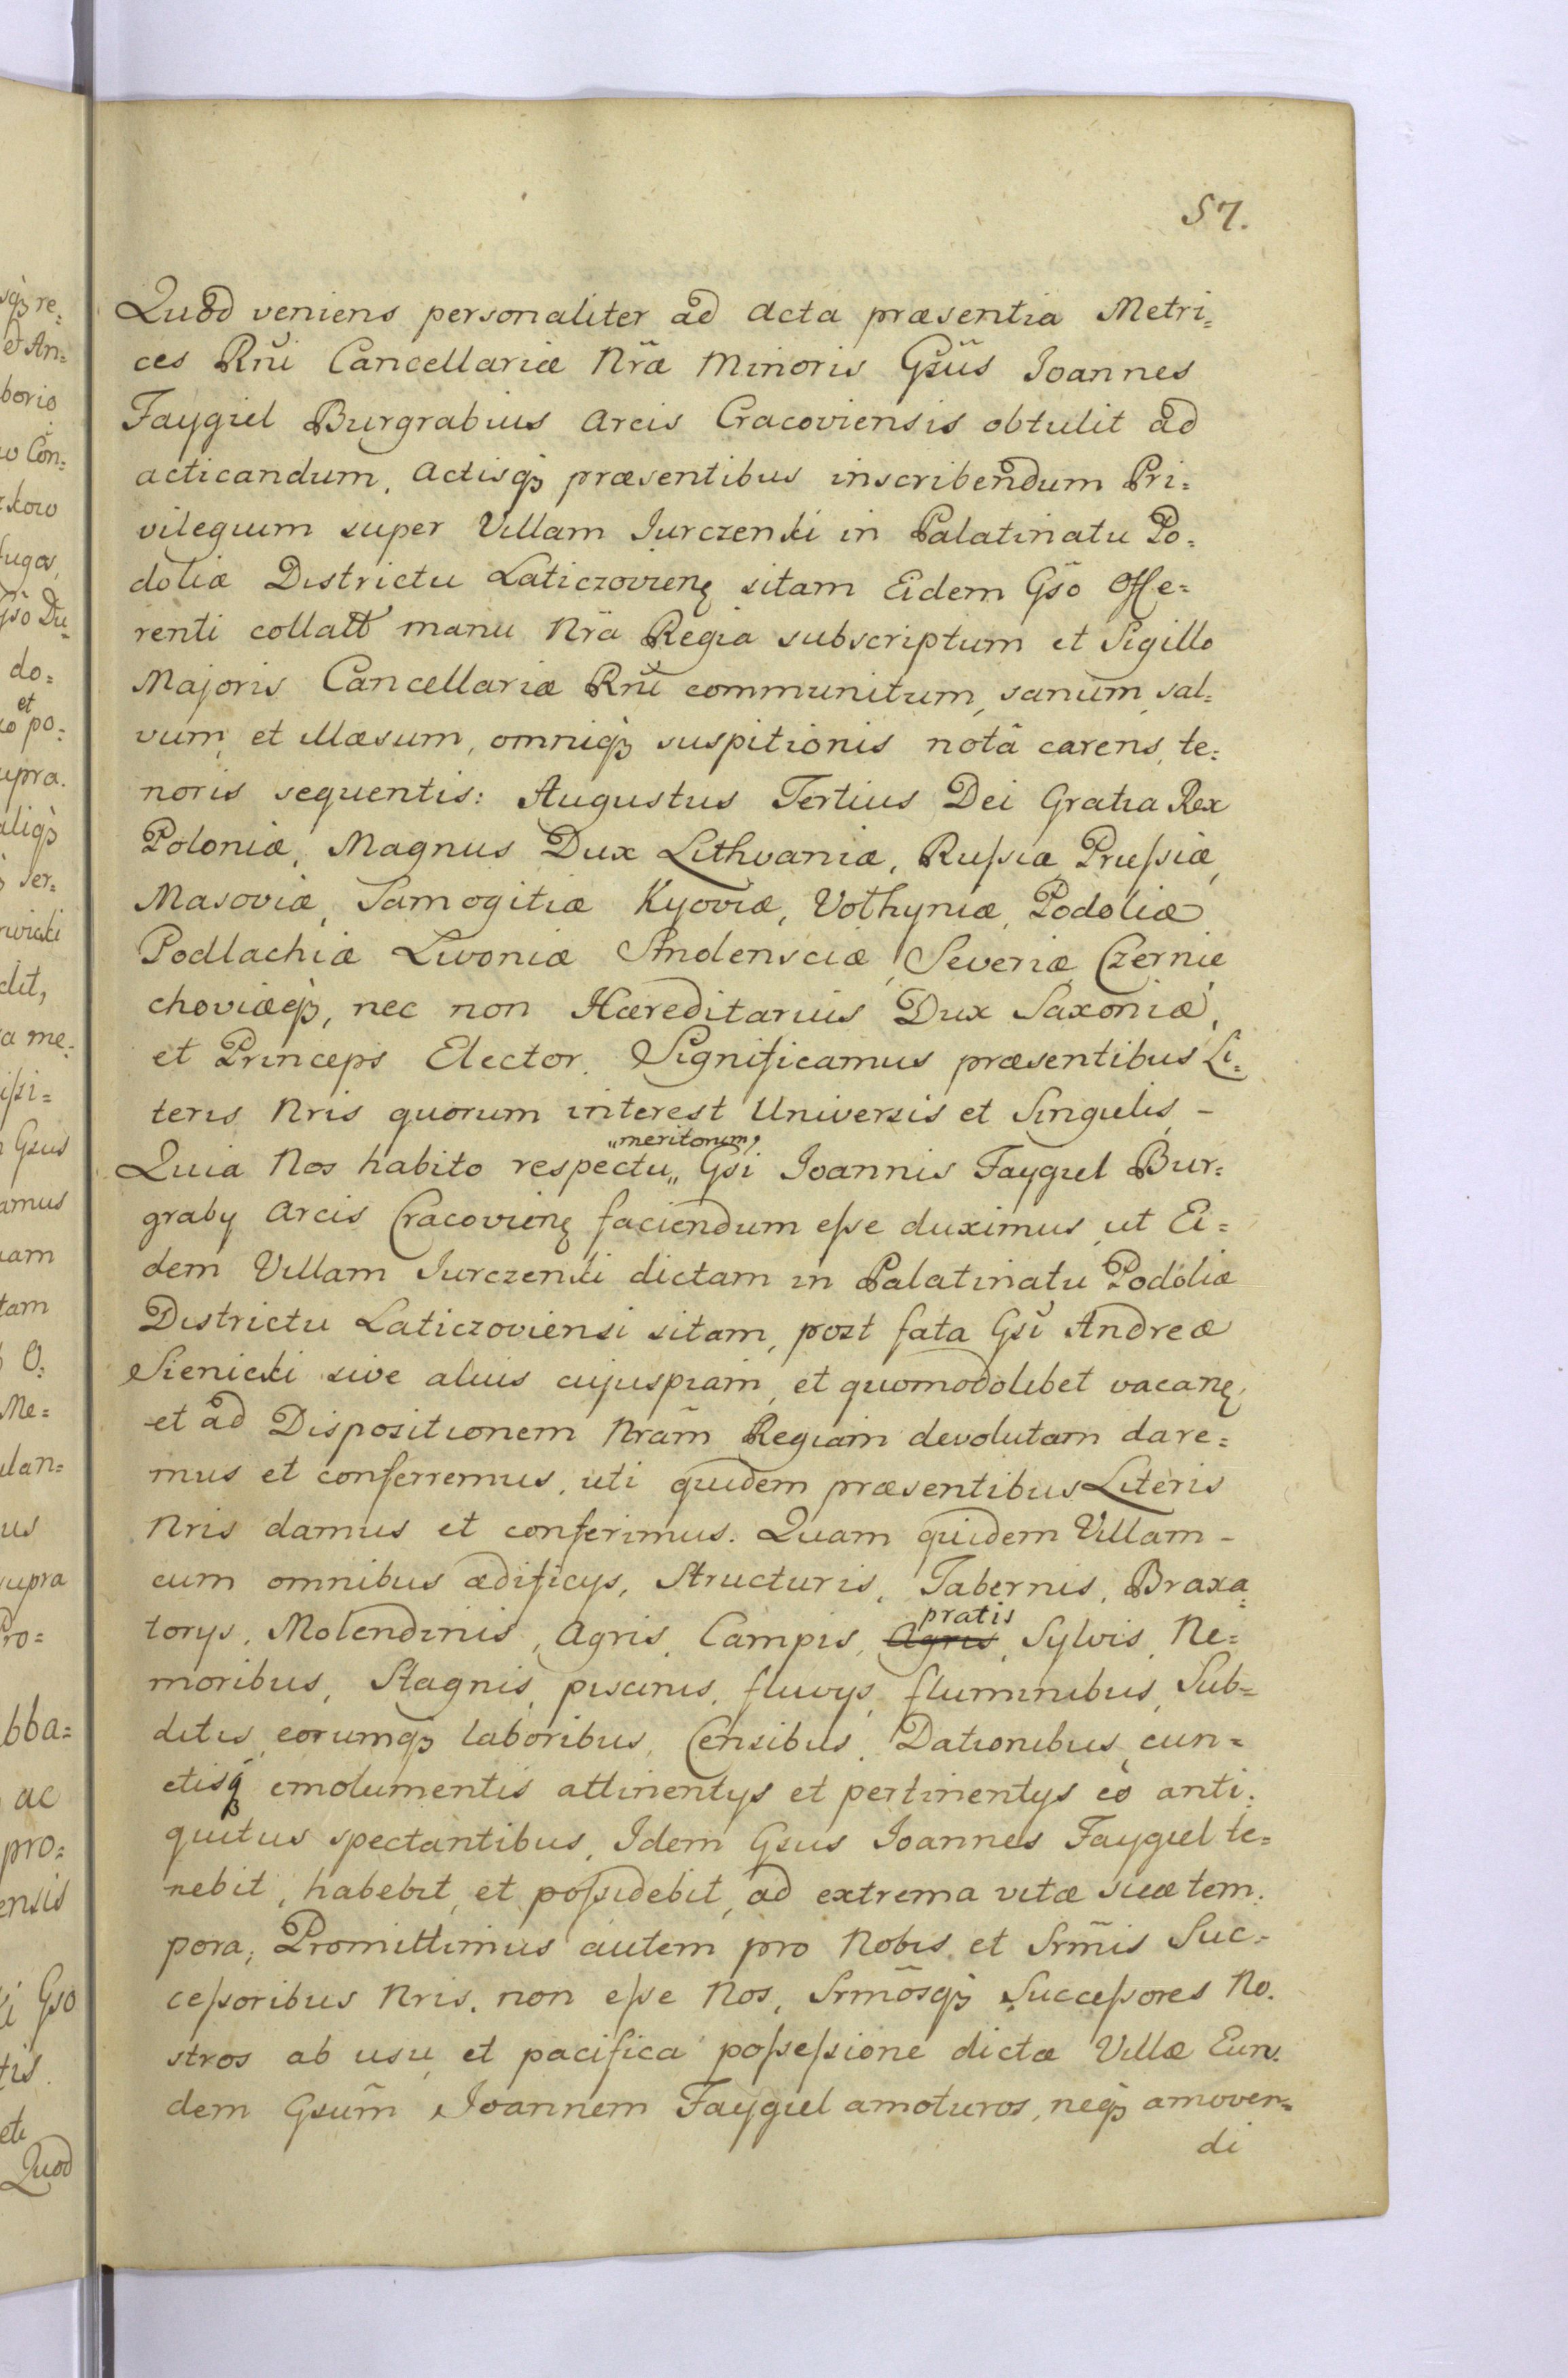 57.
Quod veniens personaliter ad acta præsentia Metri=
ces Rñi Cancellariæ Nr̃æ Minoris Gsũs Joannes
Faygiel Burgrabius Arcis Cracoviensis obtulit ad
acticandum, actisq̃ præsentibus inscribendum Pri=
vilegium super Villam Jurczenki in Palatinatu Po=
doliæ Districtu Laticzovienę sitam Eidem Gsõ Offe=
renti collatt manu Nrã Regia subscriptum et Sigillo
Majoris Cancellariæ Rñi communitum, sanum, sal=
vum, et illæsum, omniq̃ suspitionis notâ carens, te=
noris sequentis: Augustus Tertius Dei Gratia Rex
Poloniæ, Magnus Dux Lithvaniæ, Rußiæ, Prußiæ,
Masoviæ, Samogitiæ Kyoviæ, Volhyniæ, Podoliæ
Podlachiæ Livoniæ Smolensciæ, Severiæ, Czernie
choviæq̃, nec non Hæreditarius Dux Saxoniæ,
et Princeps Elector. Significamus præsentibus Li=
teris Nris quorum interest Universis et Singulis –
„meritorum„
Quia Nos habito respectu„ Gsi Joannis Faygiel Bur=
graby Arcis Cracovienę faciendum eße duximus, ut Ei=
dem Villam Jurczenki dictam in Palatinatu Podoliæ
Districtu Laticzoviensi sitam, post fata Gsĩ Andreæ
Sienicki sive alius cujuspiam, et quomodolibet vacanę,
et ad Dispositionem Nram̃ Regiam devolutam dare=
mus et conferremus, uti quidem præsentibus Literis
Nris damus et conferimus. Quam quidem Villam –
cum omnibus ædificys, Structuris, Tabernis, Braxa=
pratis
torys, Molendinis, Agris, Campis, Agris, Sylvis, Ne=
moribus, Stagnis, piscinis, fluvys, fluminibus, Sub=
ditis, eorumq̃ laboribus, Censibus, Dationibus, cun=
ctisq̃ emolumentis attinentys et pertinentys eò anti=
quitus spectantibus, Idem Gsus Joannes Faygiel te=
nebit, habebit, et poßidebit, ad extrema vitæ suæ tem=
pora; Promittimus autem pro Nobis, et Srm̃is Suc=
ceßoribus Nris, non eße Nos, Srmõsq̃ Succeßores No=
stros ab usu, et pacifica poßeßione dictæ Villæ Eun=
dem Gsum̃ Joannem Faygiel amoturos, neq̃ amoven=
di